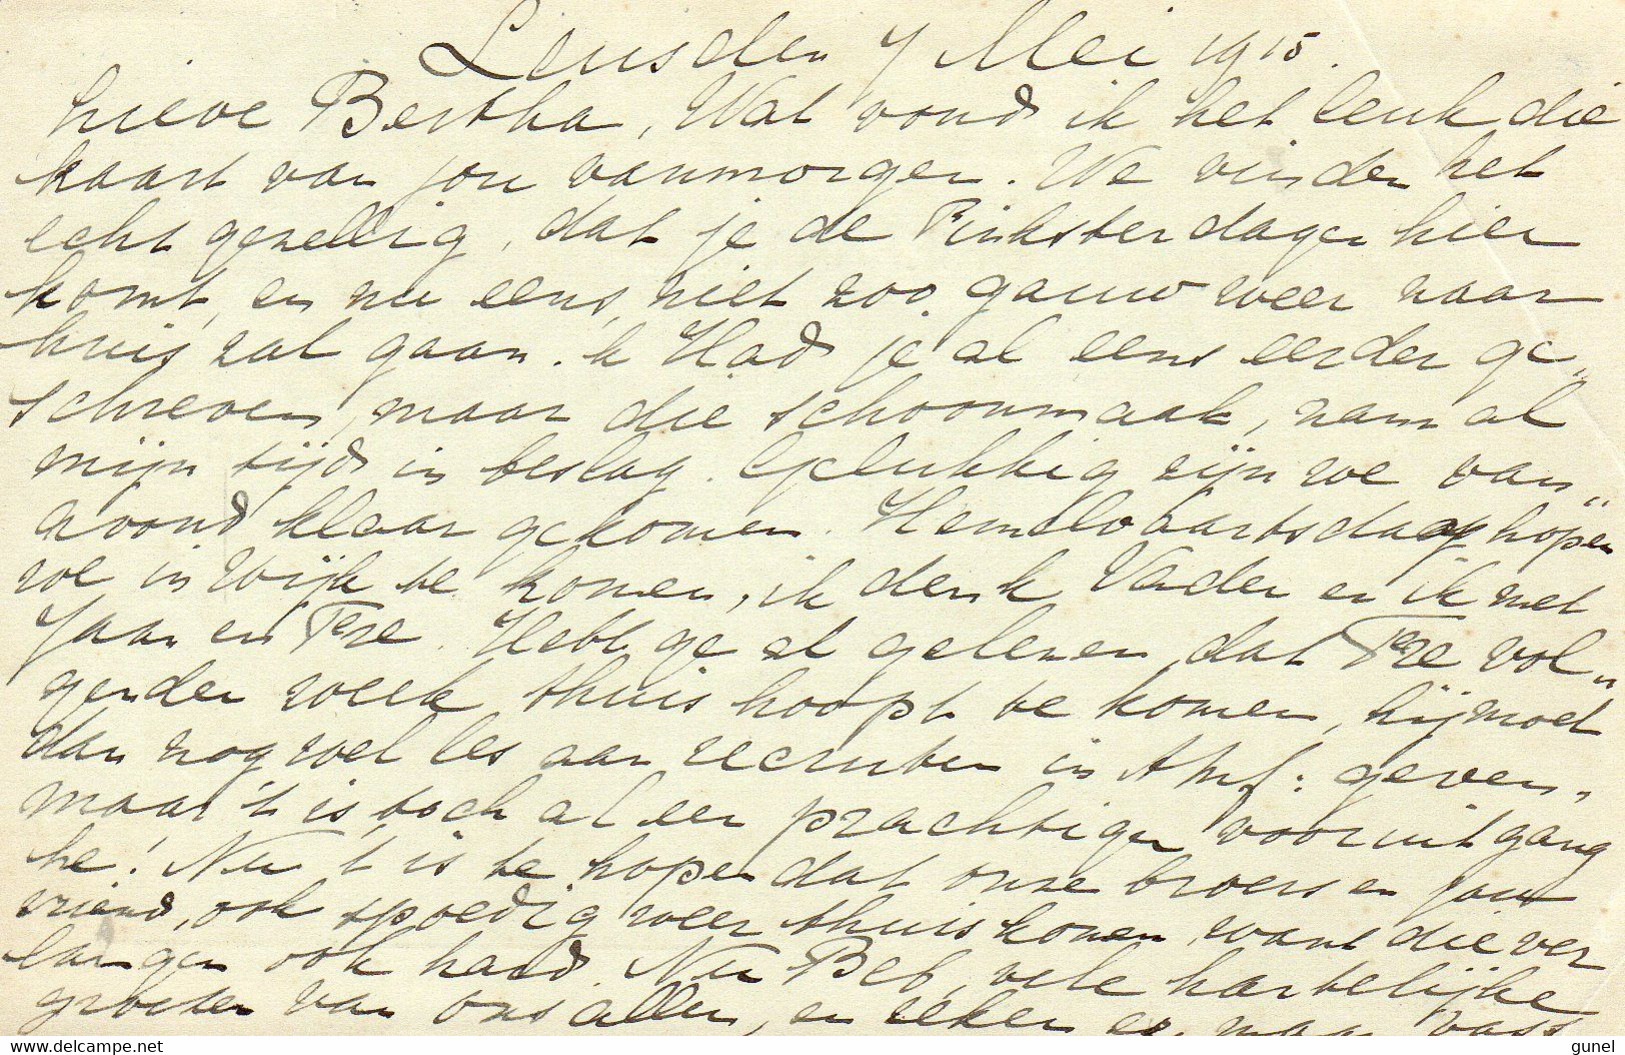 Leusden 7 Mei 1915.
Lieve Bertha, Wat vond ik het leuk die
kaart van jou vanmorgen. We vinden het
echt gezellig, dat je de Pinksterdagen hier
komt, en nu eens, niet zoo gauw weer naar
huis zal gaan. k Had je al eens eerder ge„
schreven, maar die schoonmaak, nam al
mijn tijd in beslag. Gelukkig zijn we van„
avond klaar gekomen. Hemelvaartsdag hopen
we in Wijk te komen, ik denk Vader en ik met
Jaan en Fze. Hebt ge al gelezen, dat Fze vol„
genden week thuis hoopt te komen, hij moet
dan nog wel les aan recruten in Amf: geven,
maar 't is toch al een prachtigen vooruitgang
he! Nu 't is te hopen dat onze broers en jouw
vriend, ook spoedig weer thuis komen, want die ver
langen ook hard. Nu Beb, vele hartelijke
groeten van ons allen, en reken er maar vast
delcampe.net
gunel